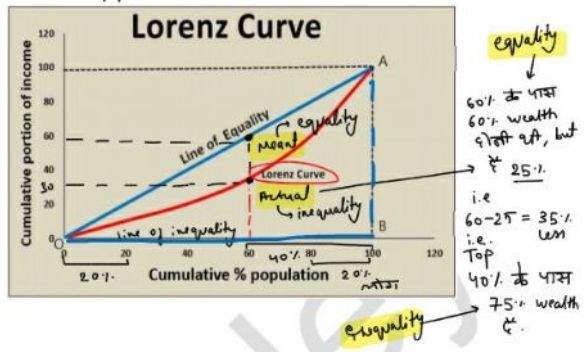 Lorenz Curve
Cumulative portion of income
120
100
80
60
40
30
20
0
Line of Equality
Meant → equality
Lorenz Curve
Actual
→ inequality
Line of inequality
A
B
O
20
40
60
80
100
120
20%.
40%
20%
Cumulative % population
equality
60% के पास
60% wealth
होनी थी, but
है 25%
i.e
60-25 = 35%
less
i.e.
Top
40% के पास
75% wealth
है.